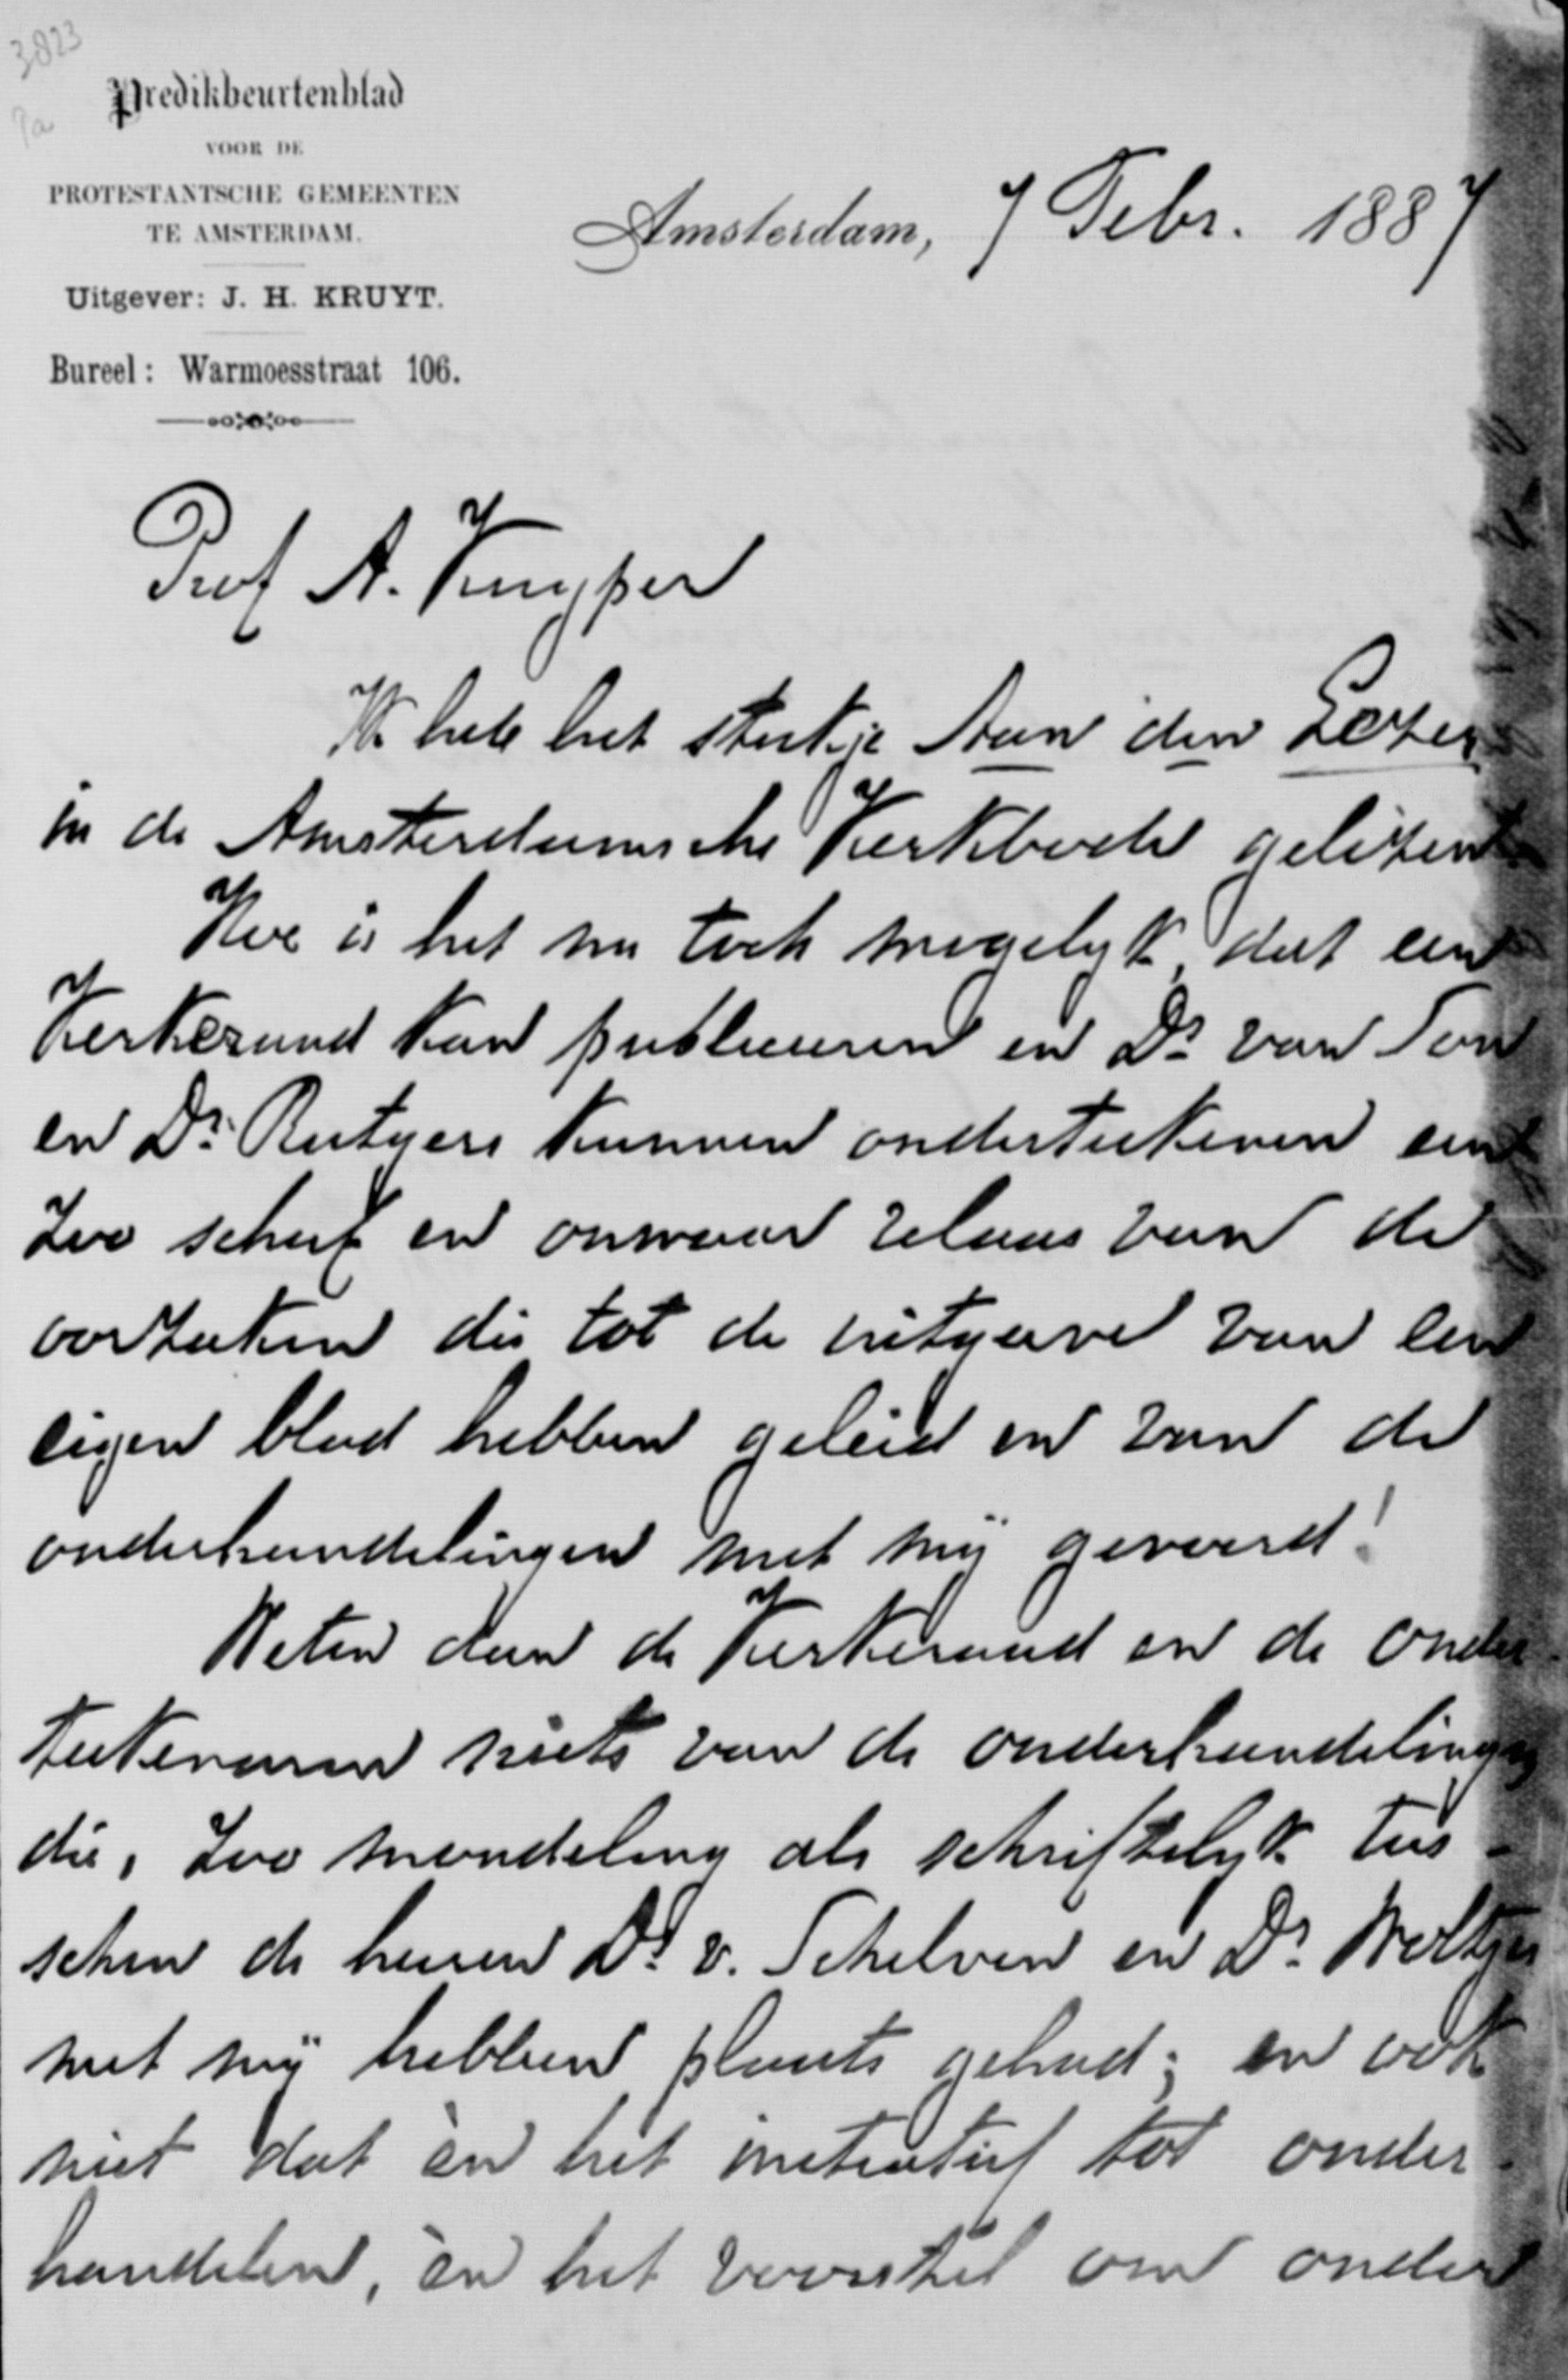 3823
9a
Predikbeurtenblad
VOOR DE
PROTESTANTSCHE GEMEENTEN
TE AMSTERDAM.
Uitgever: J. H. KRUYT.
Bureel: Warmoesstraat 106.
Amsterdam, 7 Febr. 1887
Prof A. Kuyper
Ik heb het stukje Aan den Lezer
in de Amsterdamsche Kerkbode gelezen
Hoe is het nu toch mogelyk, dat een
Kerkeraad kan publiceeren en Ds van Son
en Dr. Rutgers kunnen onderteekenen een
zoo scheef en onwaar relaas van de
oorzaken die tot de uitgave van een
eigen blad hebben geleid en van de
onderhandelingen met mij gevoerd!
Weten dan de Kerkeraad en de onder
teekenaren niets van de onderhandelingen
die, zoo mondeling als schriftelyk tus-
schen de heeren Ds v. Schelven en Dr. Woltjer
met mij hebben plaats gehad; en ook
niet dat èn het initiatief tot onder
handelen, èn het voorstel om onder